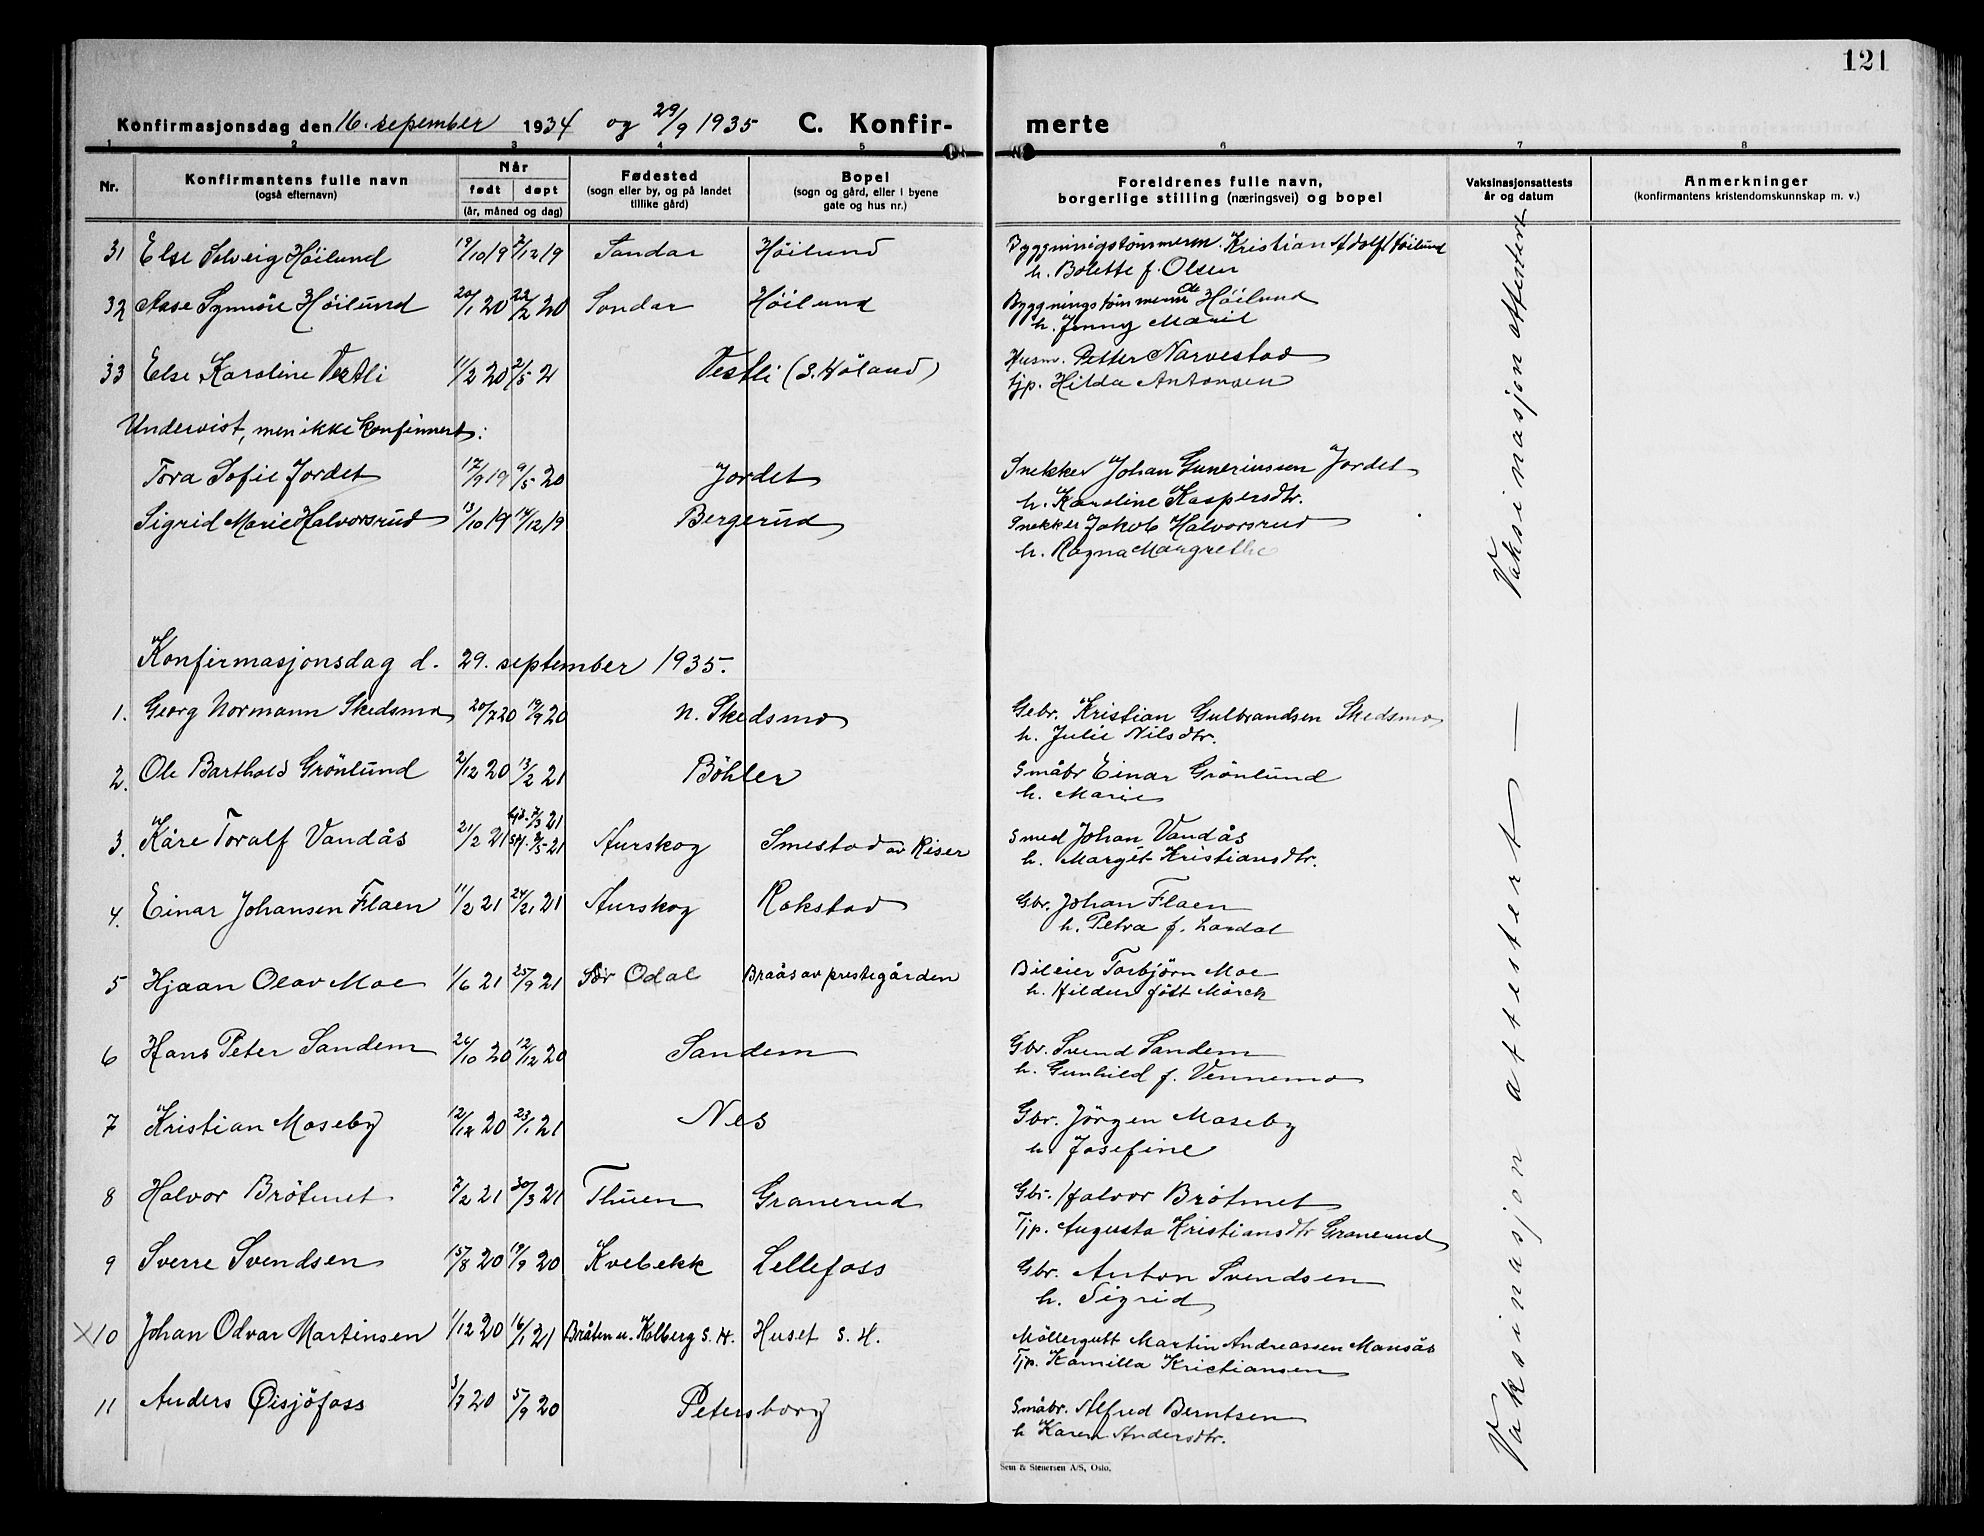 121
Konfirmasjonsdag den 16. sepember 1934 og 29/9 1935 C. Konfir- merte
1 2 3 4 5 6 7 8
Nr. Konfirmantens fulle navn (også efternavn) Når født døpt (år, måned og dag) Fødested (sogn eller by, og på landet tillike gård) Bopel (sogn og gård, eller i byene gate og hus nr.) Foreldrenes fulle navn, borgerlige stilling (næringsvei) og bopel Vaksinasjonsattests år og datum Anmerkninger (konfirmantens kristendomskunnskap m. v.)
31 Else Solveig Höilund 19/10 19 7/12 19 Sandar Höilund Byggningstömmerm. Kristian Adolf Höilund
h. Bolette f. Olsen
32 Aase Synnöve Höilund 20/1 20 22/2 20 Sondar Höilund Byggningstömmerm Ole Höilund
h. Jenny Marie
33 Else Karoline Vestli 11/2 20 2/5 21 Vestli (S. Höland) Husm. Petter Narvestad
tjp. Hilda Antonsen
Undervist, men ikke konfirmert:
Tora Sofie Jordet 17/9 19 9/5 20 Jordet Snekker Johan Guneriussen Jordet
h. Karoline Kaspersdtr.
Sigrid Marie Halvorsrud 13/10 19 14/12 19 Bergerud Snekker Jakob Halvorsrud
h. Ragna Margrethe
Vaksinasjon attestert
Konfirmasjonsdag d. 29. september 1935.
1. Georg Normann Skedsmo 20/7 20 19/9 20 n. Skedsmo Gebr. Kristian Gulbrandsen Skedsmo
h. Julie Nilsdtr.
2. Ole Barthold Grönlund 2/12 20 13/2 21 Böhler Småbr Einar Grönlund
h. Marie
3. Kåre Toralf Vandås 21/2 21 hjd. 7/3 21 st. 2/5 21 Aurskog Smestad av Riser Smed Johan Vandås
h. Margit Kristiansdtr.
4. Einar Johansen Flaen 11/2 21 24/21 21 Aurskog Rakstad Gbr. Johan Flaen
h. Petra f. Lordal
5 Hjaan Olav Moe 1/6 21 25/9 21 Sör Odal Braås av prestegården Bileier Torbjörn Moe
h. Hildur fött Mörch
6 Hans Peter Sandem 26/10 20 12/12 20 Sandem Gbr. Svend Sandem
h. Gunhild f. Vennemo
7 Kristian Moseby 12/12 20 23/1 21 Nes Gbr. Jörgen Moseby
h Josefine
8 Halvor Brötmet 7/2 21 30/3 21 Thuen Granerud Gbr. Halvor Brötmet
Tjp. Augusta Kristiansdtr Granerud
9 Sverre Svendsen 15/8 20 19/9 20 Kvebekk Lellefoss Gbr. Anton Svendsen
h. Sigrid
X10 Johan Odvar Martinsen 1/12 20 16/1 21 Bråten u. Kolberg S. H. Huset S. H. Möllergutt Martin Andreassen Mansås
Tjp. Kamilla Kristiansen
11 Anders Øisjöfoss 3/7 20 5/9 20 Petersborg Småbr. Alfred Berntsen
h Karen Andersdtr.
Vaksinasjon attestert —
Sem & Stenersen A/S, Oslo.